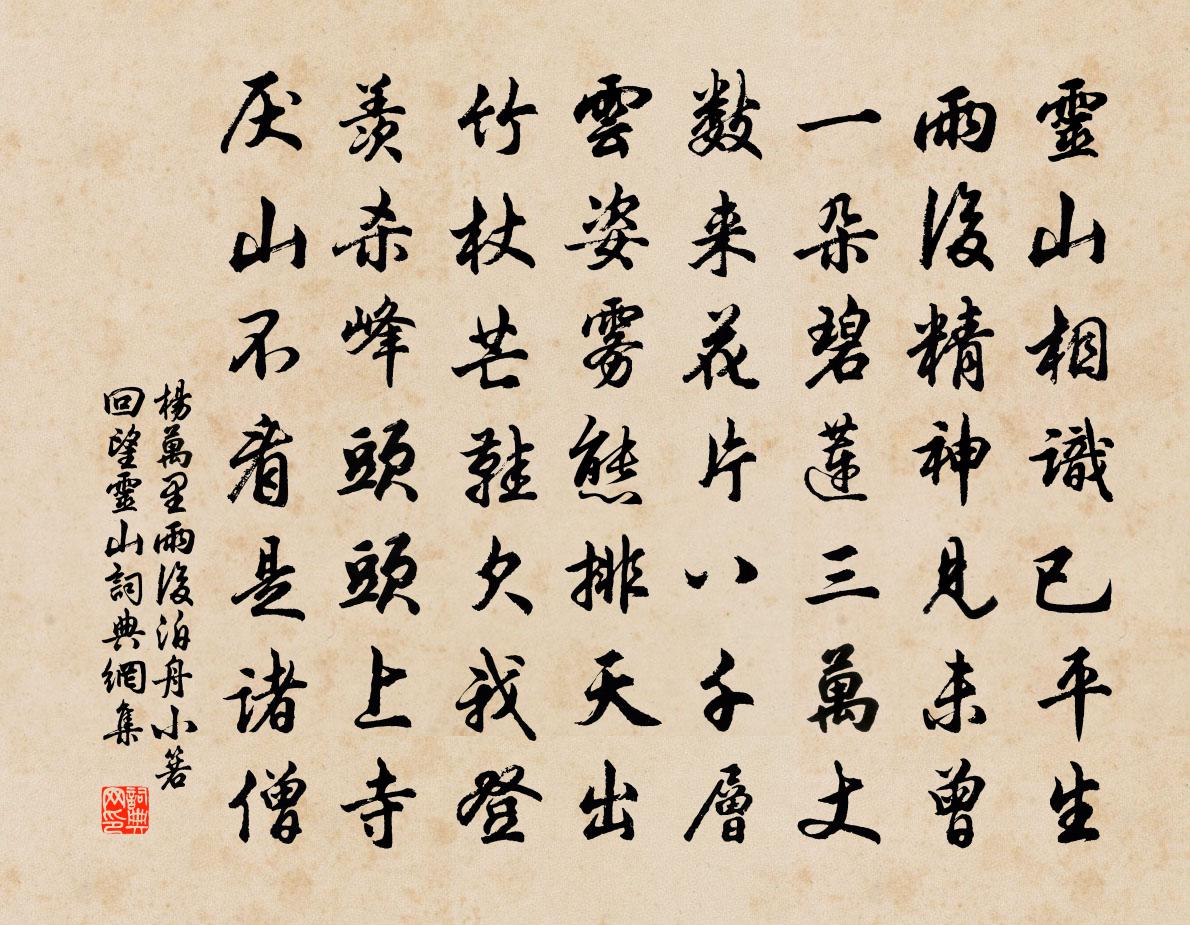 靈山相識已平生
雨後精神見未曾
一朵碧蓮三萬丈
數来花片八千層
雲姿雾態排天出
竹杖芒鞋欠我登
羨杀峰頭頭上寺
厌山不看是諸僧
楊萬里雨後泊舟小箬
回望靈山詞典網集
詞典
网印